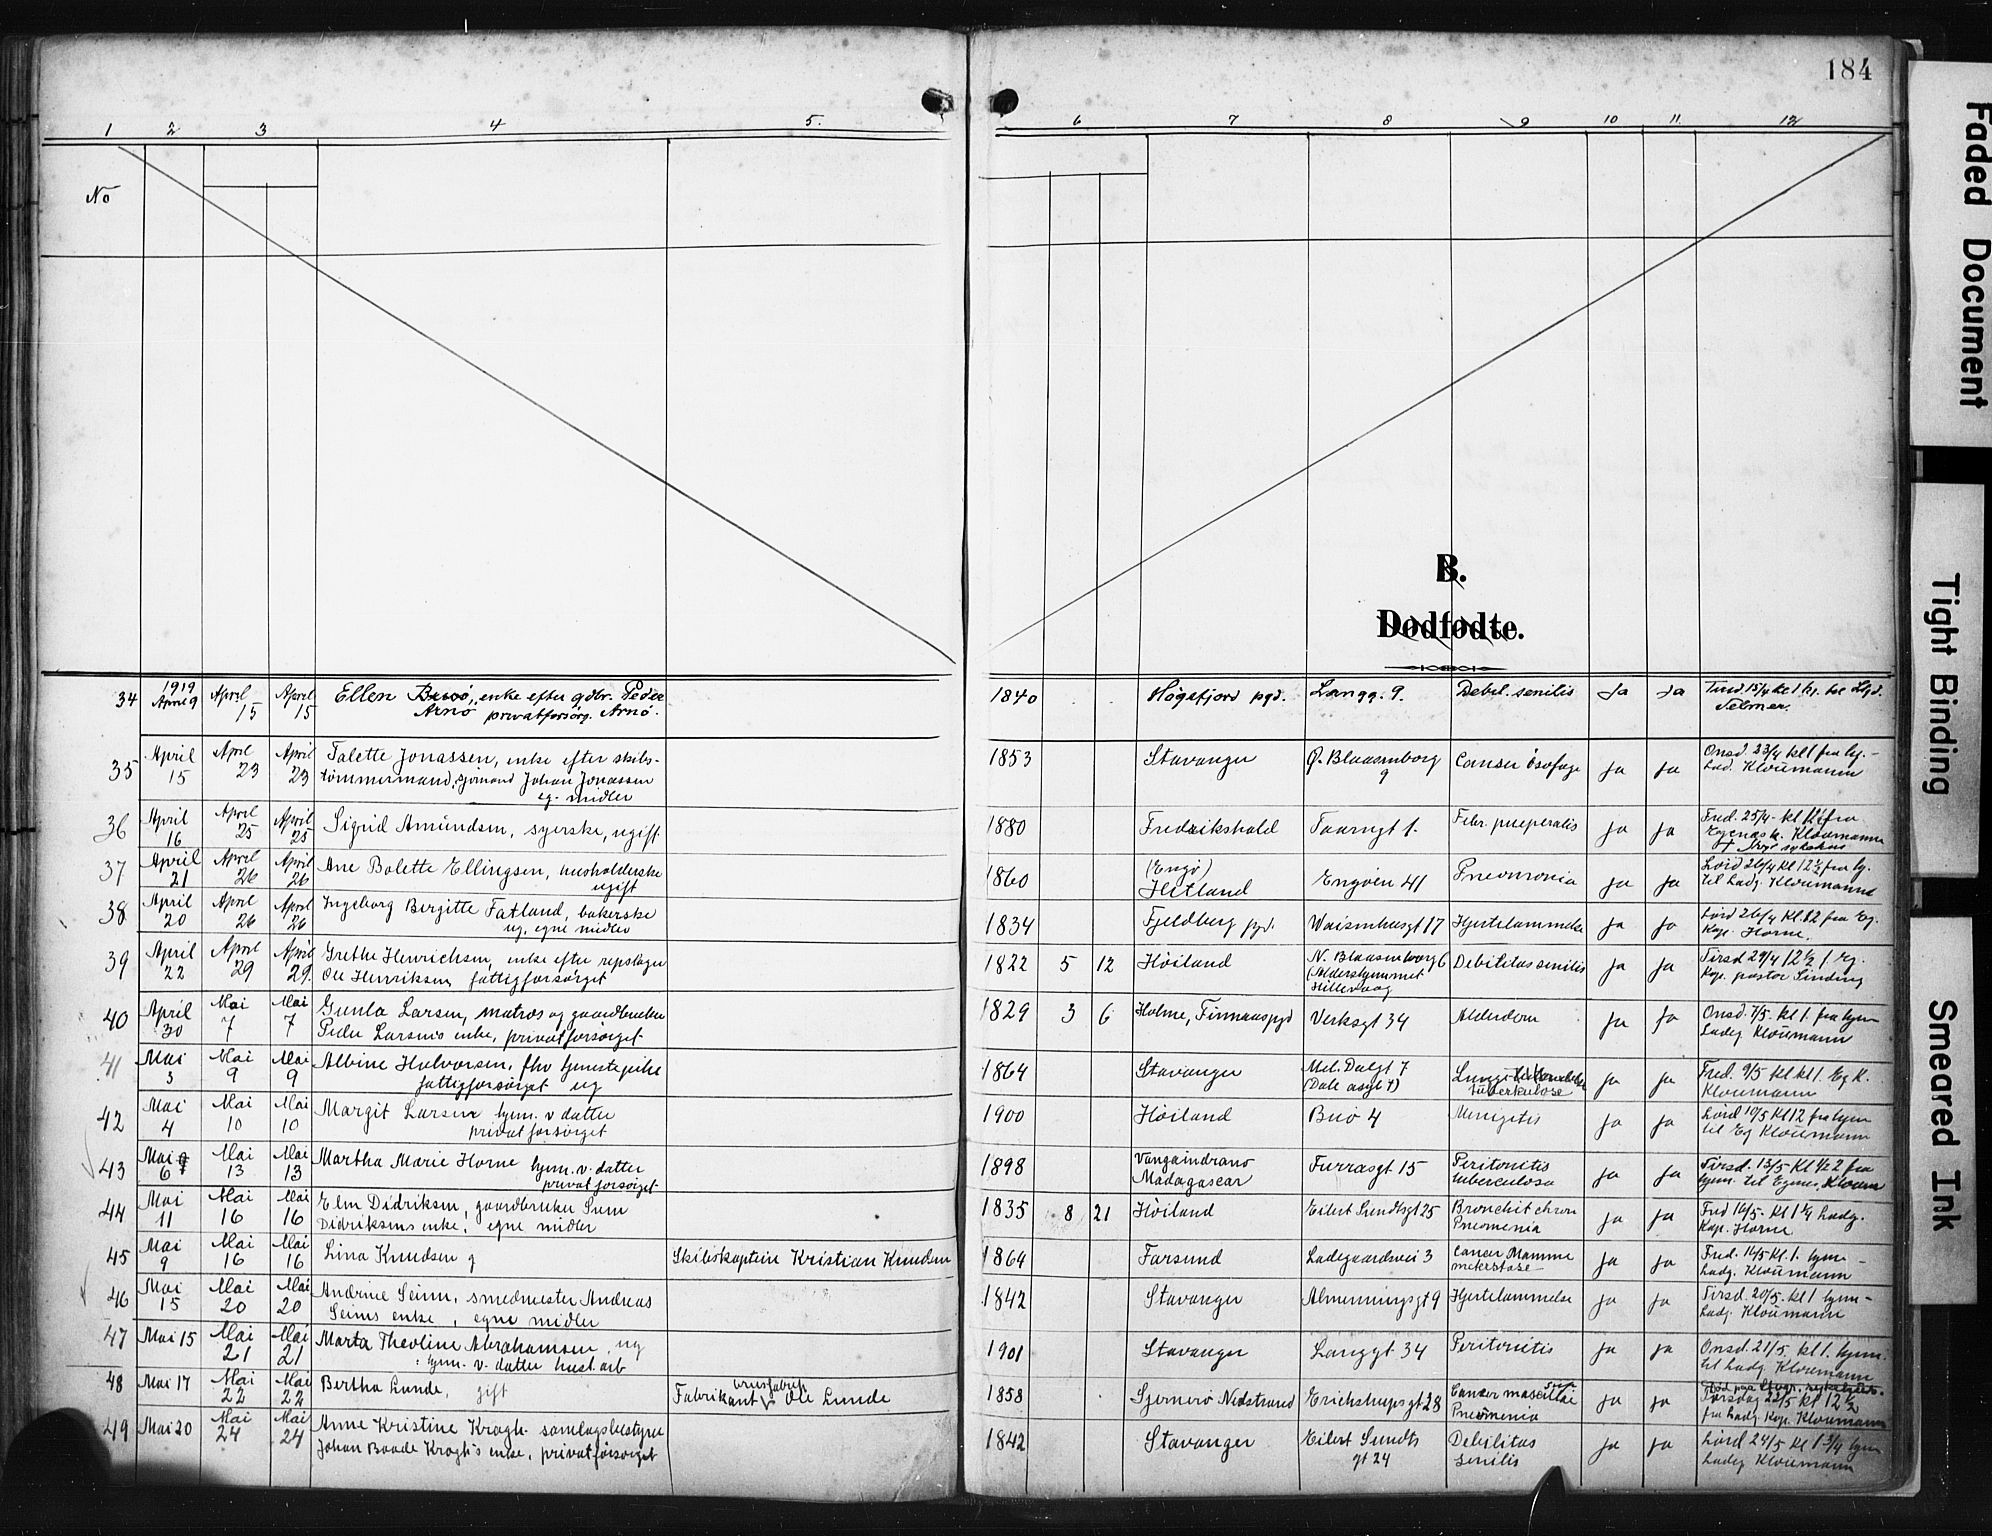 184
1 2 3 4 5. 6 7 8 9 10 11 12
No
B.
Dødfødte.
34 1919 April 9 April 15 April 15 Ellen Buø, enke efter gdbr. Peder 1840 Høgsfjord pgd. Langg. 9. Debil. senilis Ja Ja Tirsd. 15/4 kl 1
Arnø privatforsørg. Arnø. Selmer.
35 April 15 April 23 April 23 Talette Jonassen, enke efter skibs- 1853 Stavanger Ø. Blaasenborg 9 Cancer øsofage Ja Ja Onsd. 23/4 kl 1 fra hj.-
tømmermand, Johan Jonassen Lad. Kloumann
eg. midler
36 April 16 April 25 April 25 Sigrid Amundsen, syerske, ugift 1880 Fredrikshald Taarngt 1. Febr. pueperalis Ja Ja Fred. 25/4 kl fra
Egenæs k. Kloumann
37 April 21 April 26 April 26 Ane Bolette Ellingsen, husholderske 1860 (Engø) Hetland Engøen 41 Pneomonia Ja Ja Lørd 26/4 kl 12 1/2 fra hj.
ugift til Ladg. Kloumann
38 April 20 April 26 April 26 Ingeborg Birgitte Fatland, bakerske 1834 Fjeldberg pgd. Waisenhusgt 17 Hjertelammelse Ja Ja Lørd 26/4 kl. 12 fra Eg.
ug. egne midler Kap. Horne.
39 April 22 April 29 April 29. Grethe Henrichsen, enke efter repslager 1822 5 12 Høiland N. Blaasenborg 6 Debilitas senilis Ja Ja Tirsd 29/4 12 1/2 f. Eg.
Ole Henriksen, fattigforsørget (Aldershjemmet Hillevaag Kap. pastor Sinding
40 April 30 Mai 7 Mai 7 Gunla Larsen, matros og gaardbruker 1829 3 6 Holme, Finnaaspgd Verksgt 34 Alderdom Ja Ja Onsd. 7/5 kl 1. fra hjem
Peder Larsens enke, privatforsørget Ladeg Kloumann
41 Mai 3 Mai 9 Mai 9 Albine Halvorsen, fhv tjenestepike 1864 Stavanger Mel. Dalgt 7 Lunge Ja Ja Fred. 9/5 kl kl 1. Eg K.
fattigforsørget ug (Dale asyl ) tuberkulose Kloumann
42 Mai 4 Mai 10 Mai 10 Margit Larsen hjem. v datter 1900 Høiland Buø 4 Menigetis Ja Ja Lørd 10/5 kl 12 fra hjem
privatforsørget til Eg Kloumann
43 Mai 6 Mai 13 Mai 13 Martha Marie Horne hjem. v. datter 1898 Vangaindrano Furrasgt 15 Peritonitis Ja Ja Tirsd. 13/5 kl 1/2 2 fra
privatforsørget Madagascar tuberculosa hjem. til Egenes, Kloum
44 Mai 11 Mai 16 Mai 16 Elen Didriksen, gaardbruker Sven 1835 8 21 Høiland Eilert Sundtsgt 25 Bronchit chron Ja Ja Fred 16/5. kl 1 1/4 Ladg.
Didriksens enke, egne midler Pneomenia Kap. Horne
45 Mai 9 Mai 16 Mai 16 Lina Knudsen g Skibskaptein Kristian Knudsen 1864 Farsund Ladegaardsvei 3 Cancer Mamma Ja Ja Fred. 16/5 kl. 1. hjem-
metastase Ladg. Kloumann
46 Mai 15 Mai 20 Mai 20 Andrine Seim, smedmester Andreas 1842 Stavanger Almenningsgt 9 Hjertelammelse Ja Ja Tirsd. 20/5. kl 1 hjem-
Seims enke, egne midler Ladg. Kloumann
47 Mai 15 Mai 21 Mai 21 Marta Theoline Abrahamsen, ug 1901 Stavanger Langgt 34 Peritonitis Ja Ja Onsd. 21/5. kl 1. hjem.
hjem. v. datter hust arb til Ladg. Kloumann
48 Mai 17 Mai 22 Mai 22 Bertha Lunde, gift Fabrikant Ole Lunde 1858 Sjernerø Nedstrand Erichstrupsgt 28 Cancer maxillai sup Ja Ja Torsdag 22/5 kl 12 1/2
Pneumenia fra Ladg. Kap. Kloumann
49 Mai 20 Mai 24 Mai 24 Anne Kristine Krogh. samlagsbestyrer 1842 Stavanger Eilert Sundts gt 24 Debilitas Ja Ja Lørd 24/5 kl 1 3/4 hjem
Johan Baade Krogh's enke, privatforsørget senilis Ladeg Kloumann
Faded Document
Tight Binding
Smeared Ink